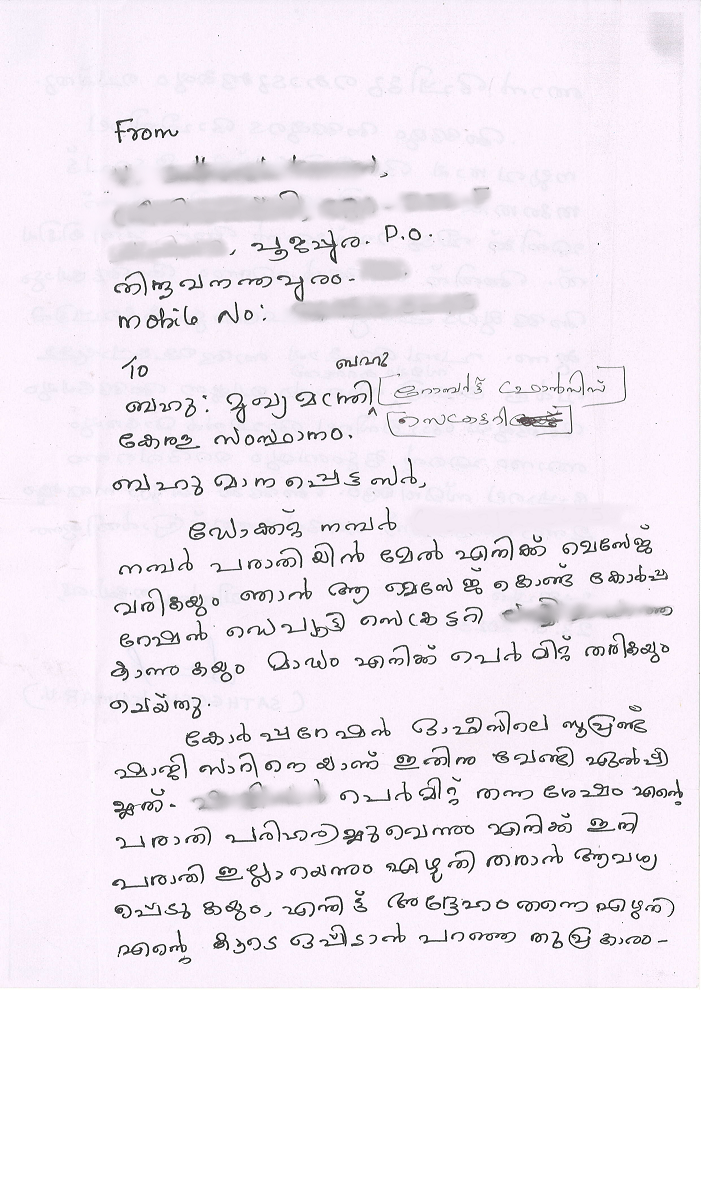 From
, പൂജപ്പുര. P.O.
തിരുവനന്തപുരം-
mobile No:
To
ബഹു
ബഹു: മുഖ്യമന്ത്രി റോബർട്ട് ഫ്രാൻസിസ്
കേരള സംസ്ഥാനം. സെക്രട്ടറി
ബഹുമാനപ്പെട്ട സർ,
ഡോക്കറ്റ് നമ്പർ
നമ്പർ പരാതിയിൻ മേൽ എനിക്ക് മെസേജ്
വരികയും ഞാൻ ആ മെസേജ് കൊണ്ട് കോർപ്പ
റേഷൻ ഡെപ്യൂട്ടി സെക്രട്ടറി
കാണുകയും മാഡം എനിക്ക് പെർമിറ്റ് തരികയും
ചെയ്തു.
കോർപ്പറേഷൻ ഓഫീസിലെ സൂപ്രണ്ട്
ഷാജി സാറിനെയാണ് ഇതിനു വേണ്ടി ഏൽപ്പി
ച്ചത്- പെർമിറ്റ് തന്ന ശേഷം എന്റെ
പരാതി പരിഹരിച്ചുവെന്നും എനിക്ക് ഇനി
പരാതി ഇല്ലായെന്നും എഴുതി തരാൻ ആവശ്യ
പ്പെടുകയും, എന്നിട്ട് അദ്ദേഹം തന്നെ എഴുതി
എന്റെ കൂടെ ഒപ്പിടാൻ പറഞ്ഞ